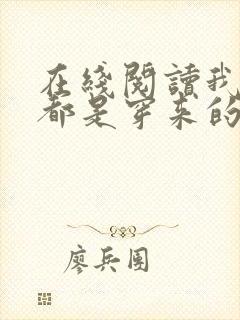 在綫閱讀我
都是穿来的
廖兵團